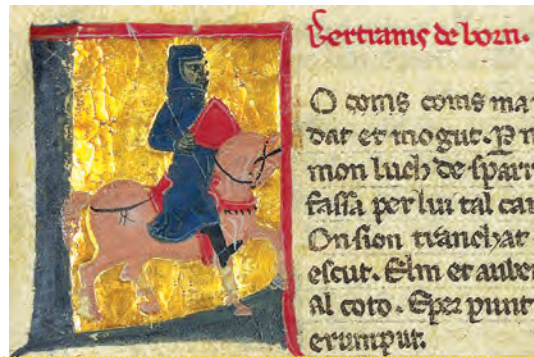 Bertrams de born.
O coms coms ma
dat et mogut. P
mon luch de sparr
fassa per lui tal
On sion tranchat
escut. Elm et auber
Al coto. Eper punt
erumput.